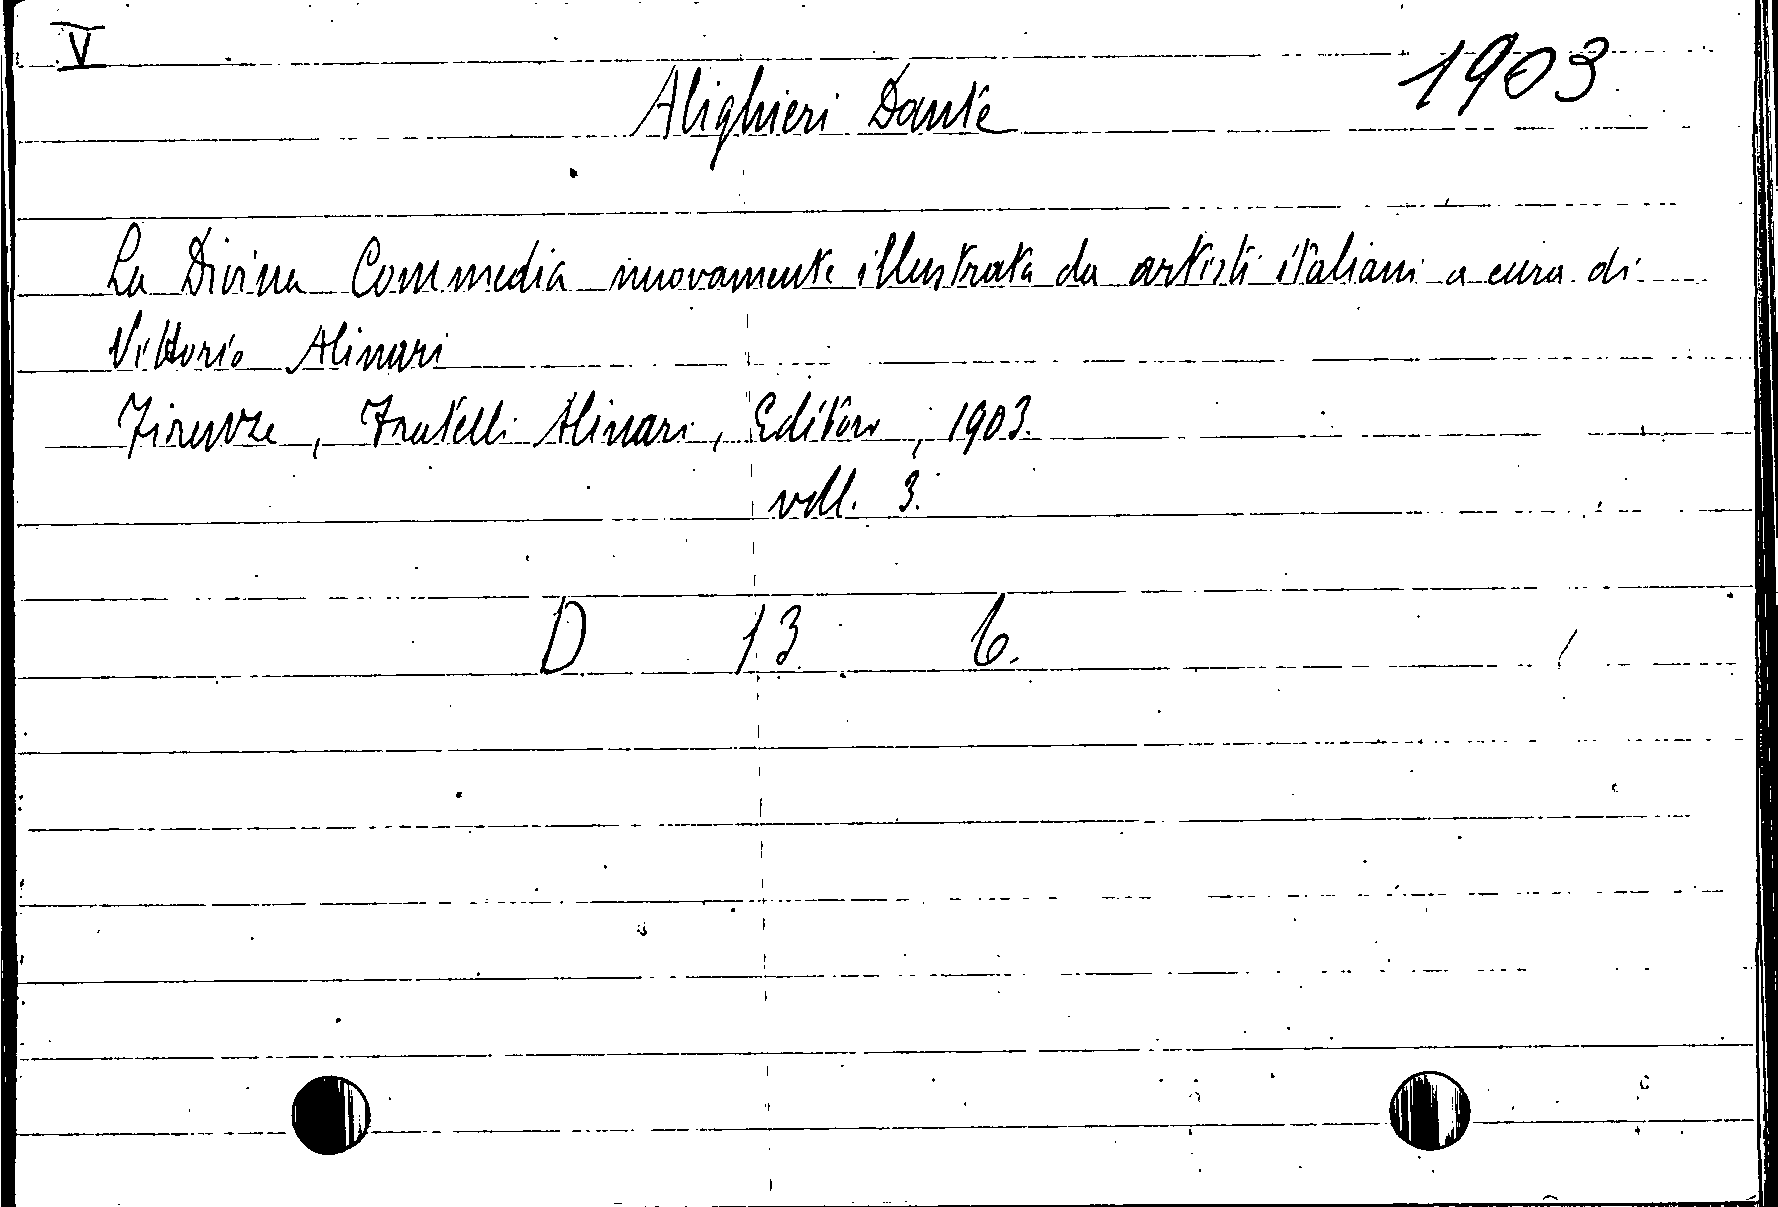 V
1903
Alighieri Dante
La Divina Commedia nuovamente illustrata da artisti italiani a cura di
Vittorio Alinari
Firenze, Fratelli Alinari, Editori, 1903.
voll. 3.
D 13 6.